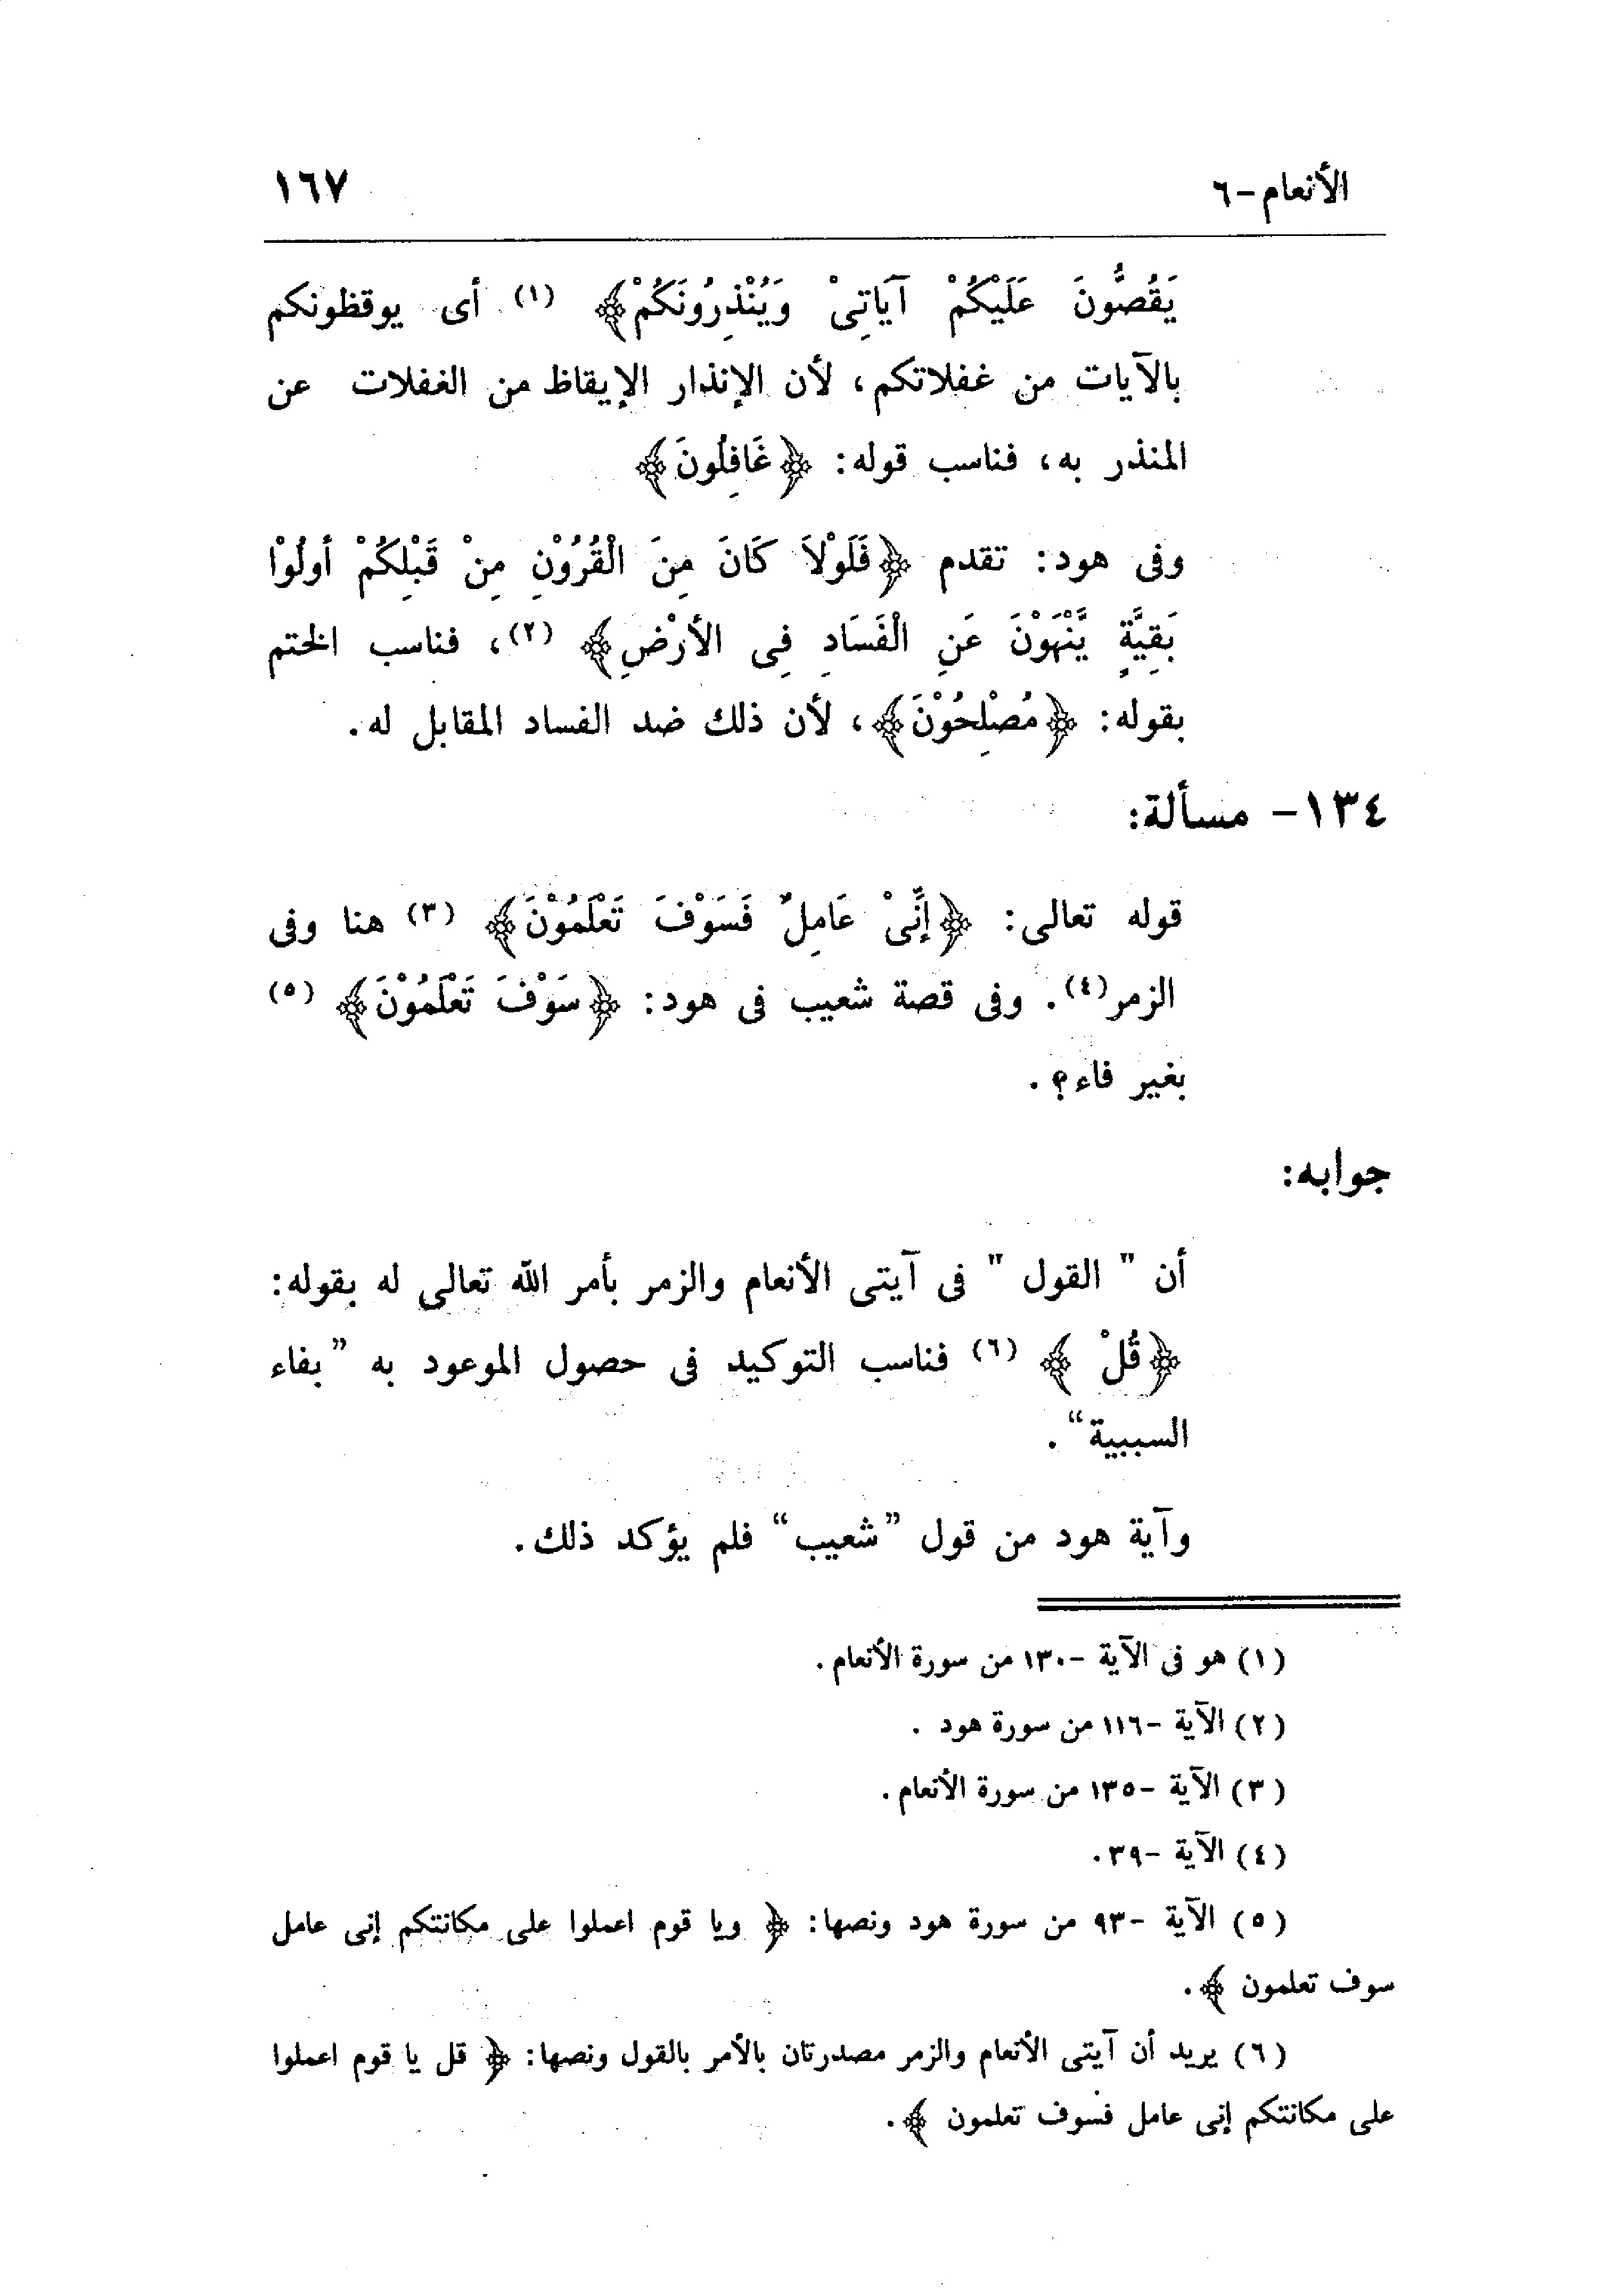 الأنعام -٦ ١٦٧
يَقُصُّونَ عَلَيْكُمْ آيَاتِىْ وَيُنْذِرُونَكُمْ﴾ (١) أى يوقظونكم
بالآيات من غفلاتكم، لأن الإنذار الإيقاظ من الغفلات عن
المنذر به، فناسب قوله: ﴿غَافِلُونَ﴾
وفى هود: تقدم ﴿فَلَوْلاَ كَانَ مِنَ الْقُرُوْنِ مِنْ قَبْلِكُمْ أولُوْا
بَقِيَّةٍ يَّنْهَوْنَ عَنِ الْفَسَادِ فِى الأرْضِ﴾ (٢)، فناسب الختم
بقوله: ﴿مُصْلِحُوْنَ﴾، لأن ذلك ضد الفساد المقابل له.
١٣٤- مسألة:
قوله تعالى: ﴿إنِّىْ عَامِلٌ فَسَوْفَ تَعْلَمُوْنَ﴾ (٣) هنا وفى
الزمر(٤). وفى قصة شعيب فى هود: ﴿سَوْفَ تَعْلَمُوْنَ﴾ (٥)
بغير فاء؟.
جوابه:
أن " القول " فى آيتى الأنعام والزمر بأمر الله تعالى له بقوله:
﴿قُلْ ﴾ (٦) فناسب التوكيد فى حصول الموعود به ”بفاء
السببية“.
وآية هود من قول ”شعيب“ فلم يؤكد ذلك.
(١) هو فى الآية -١٣٠ من سورة الأنعام.
(٢) الآية -١١٦ من سورة هود .
(٣) الآية -١٣٥ من سورة الأنعام.
(٤) الآية -٣٩.
(٥) الآية -٩٣ من سورة هود ونصها: ﴿ ويا قوم اعملوا على مكانتكم إنى عامل
سوف تعلمون ﴾.
(٦) يريد أن آيتى الأنعام والزمر مصدرتان بالأمر بالقول ونصها: ﴿ قل يا قوم اعملوا
على مكانتكم إنى عامل فسوف تعلمون ﴾.